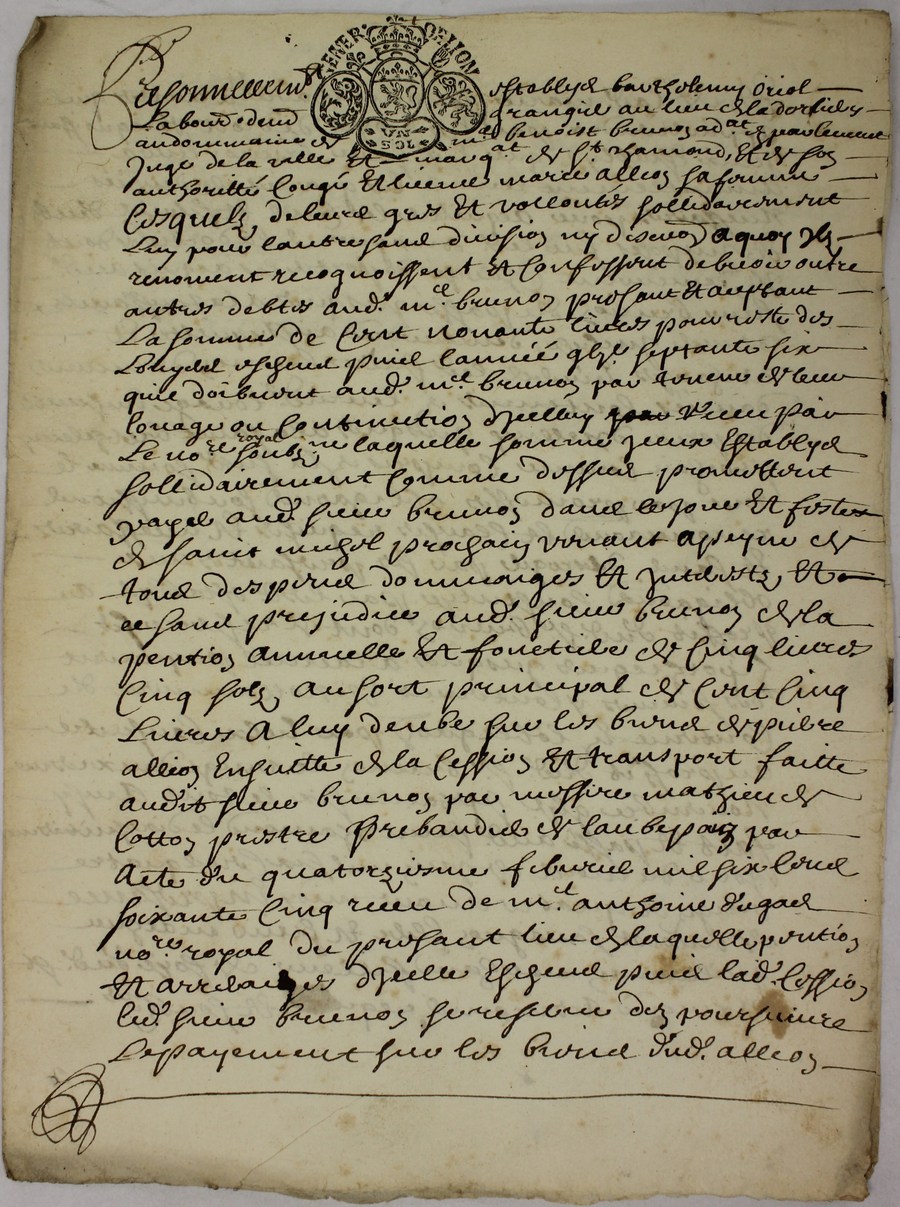 GENER. DE LION
VN SOL
Personnellemt. establys barthelemy oriol
Labour. dem a rangié au lieu de la
au dommaine de me benoist brunon adat. en parlement
Juge de la ville et marqat. de st. chamond, et de son
authoritté congé et licence marie alleon sa femme
Lesquels de leurs gres et vollontés sollidairement
Lun pour lautre sans division ny discution a quoy ils
renoncent recognoissent et confessent debvoir outre
autres debtes aud. me. brunon presant et acceptant
La somme de cent nonante livres pour reste des
Louyers escheus puis lannée gbje septante six
quils doibvent aud. me. brunon par teneur de leur
louage ou continution dicelluy receu par
Le nore. royal soubzne laquelle somme iceux establys
sollidairement comme dessus promettent
payer aud. sieur brunon dans le jour et feste
de sainct michel prochain venant a peyne de
tous despens dommaiges et interestz, et
ce sans prejudice aud. sieur brunon de la
pention annuelle et fonciere de cinq livres
Cinq solz au sort principal de cent cinq
Livres a luy deube sur les biens de pierre
alleon ensuitte de la cession et transport faitte
audit sieur brunon par messire mathieu de
Cotton prestre Prebandier de laubepin par
Acte du quatorziesme febvrier mil six cens
soixante cinq receu de me. anthoine dugas
nore. royal du presant lieu de laquelle pention
et arreraiges dicelle escheus puis lad. cession
led. sieur brunon se reserve den poursuivre
Le payement sur les biens dud. alleon